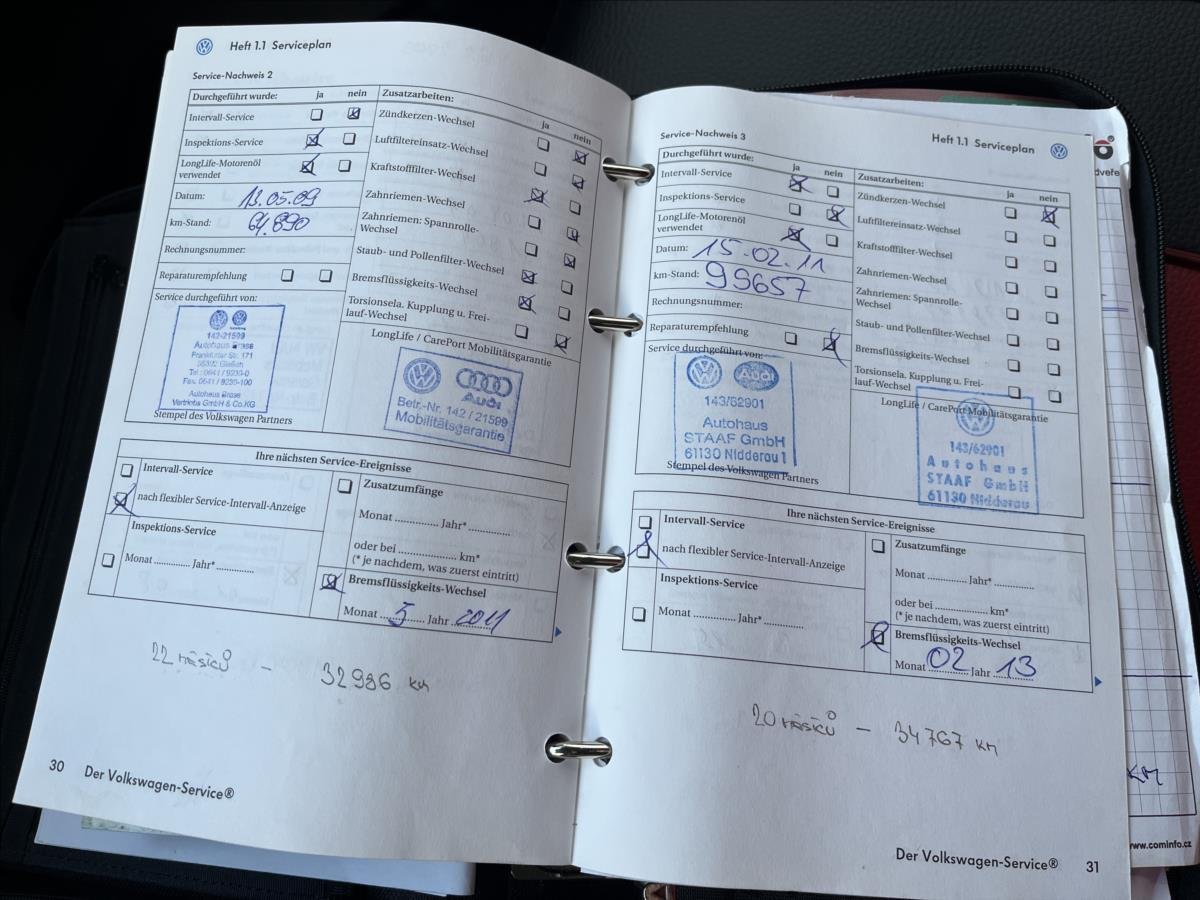 Heft 1.1 Serviceplan
Service-Nachweis 2
Durchgeführt wurde: ja nein
Intervall-Service
Inspektions-Service
LongLife-Motorenöl
verwendet
Datum: 13.05.09
km-Stand: 64.890
Rechnungsnummer:
Reparaturempfehlung
Service durchgeführt von:
142-21599
Autohaus Brase
Frankfurter Str. 171
Tel.: 0641 / 9230-0
Fax: 0641 / 9230-100
Autohaus Brase
Vertriebs GmbH & Co.KG
Stempel des Volkswagen Partners
Zusatzarbeiten: ja nein
Zündkerzen-Wechsel
Luftfiltereinsatz-Wechsel
Kraftstofffilter-Wechsel
Zahnriemen-Wechsel
Zahnriemen: Spannrolle-
Wechsel
Staub- und Pollenfilter-Wechsel
Bremsflüssigkeits-Wechsel
Torsionsela. Kupplung u. Frei-
lauf-Wechsel
LongLife / CarePort Mobilitätsgarantie
Audi
Betr.-Nr. 142 / 21599
Mobilitätsgarantie
Ihre nächsten Service-Ereignisse
Intervall-Service
nach flexibler Service-Intervall-Anzeige
Inspektions-Service
Monat .............. Jahr* ..............
Zusatzumfänge
Monat .............. Jahr* ..............
oder bei .................... km*
(* je nachdem, was zuerst eintritt)
Bremsflüssigkeits-Wechsel
Monat 5 Jahr 2011
22 měsíců – 32986 km
30 Der Volkswagen-Service®
Heft 1.1 Serviceplan
Service-Nachweis 3
Durchgeführt wurde: ja nein
Intervall-Service
Inspektions-Service
LongLife-Motorenöl
verwendet
Datum: 15.02.11
km-Stand: 99657
Rechnungsnummer:
Reparaturempfehlung
Service durchgeführt von:
Audi
143/62901
Autohaus
STAAF GmbH
61130 Nidderau 1
Stempel des Volkswagen Partners
Zusatzarbeiten: ja nein
Zündkerzen-Wechsel
Luftfiltereinsatz-Wechsel
Kraftstofffilter-Wechsel
Zahnriemen-Wechsel
Zahnriemen: Spannrolle-
Wechsel
Staub- und Pollenfilter-Wechsel
Bremsflüssigkeits-Wechsel
Torsionsela. Kupplung u. Frei-
lauf-Wechsel
LongLife / CarePort Mobilitätsgarantie
143/62901
Autohaus
STAAF GmbH
61130 Nidderau
Ihre nächsten Service-Ereignisse
Intervall-Service
nach flexibler Service-Intervall-Anzeige
Inspektions-Service
Monat .............. Jahr* ..............
Zusatzumfänge
Monat .............. Jahr* ..............
oder bei .................... km*
(* je nachdem, was zuerst eintritt)
Bremsflüssigkeits-Wechsel
Monat 02 Jahr 13
20 měsíců – 34767 km
Der Volkswagen-Service® 31
km
www.cominfo.cz